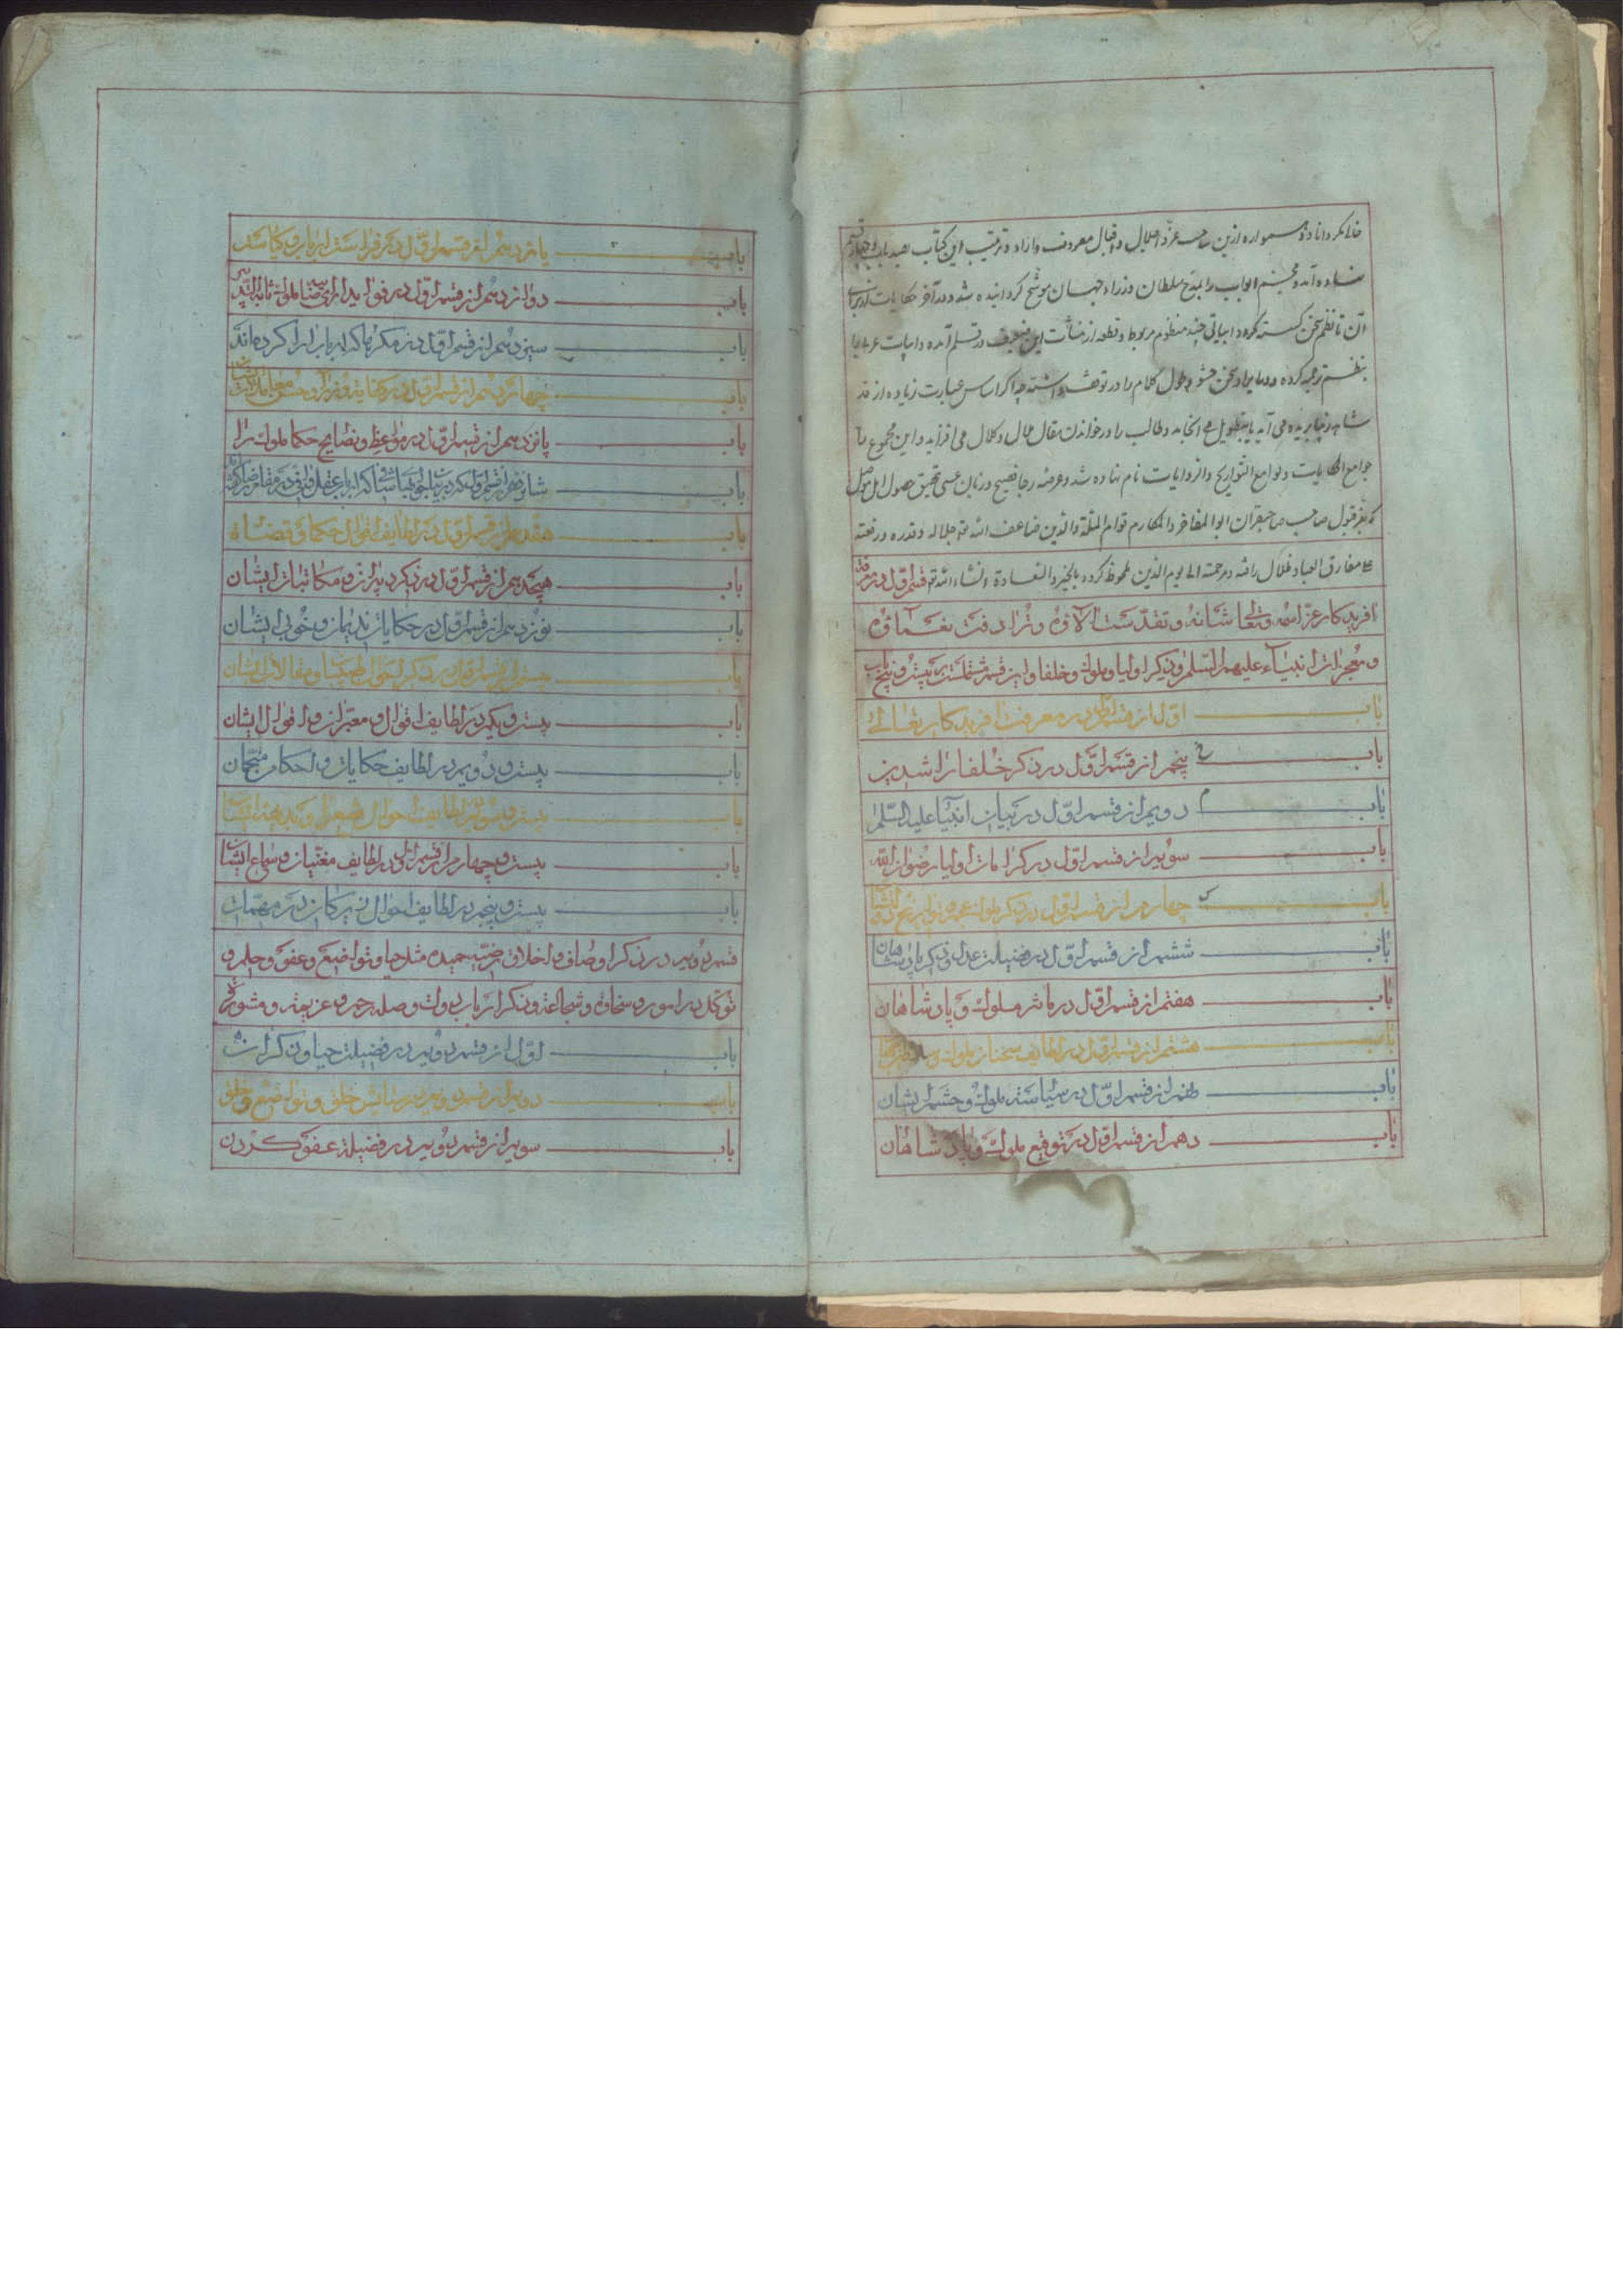 خالی کرداناد و همواره ازین صاحب عزّ و اجلال و اقبال معروف دارد و ترتیب این کتاب بصد باب و چهار قسم
نهاده آمد و مختتم ابواب را بمدح سلطان وزراء جهان موشّح کردانیده شد و در آخر حکایات از برای
آن تا نظم سخن کسسته نکردد ابیاتی چند منظوم مربوط و قطعه از منشآت این ضعیف در قلم آمده و ابیات عربی را
بنظم ترجمه کرده و در ایراد سخن حشو و طول کلام را در توقف داشته چه اکر اساس عبارت زیاده از قد
شاهد می آید بتطویل می انجامد و طالب را در خواندن مقال ملال و کلال می افزاید و این مجموع را
جوامع الحکایات و لوامع التواریخ و الروایات نام نهاده شد و عرضه رجا فصیح و زبان عسی تحقیق حصول
که بعز قبول صاحب صاحبقران ابو المفاخر و المکارم قوام الملة و الدین ضاعف الله جلاله و قدره و رفعته
علی مفارق العباد ظلال رافته و مرحمته الی یوم الدین ملحوظ کردد بالخیر و السعادة انشاء الله تع قسم اوّل در معرفة
افریدکار عزّ اسمه و تعالی شانه و تقدّست الآؤه و ترادفت نعمآؤه
و معجزات انبیآء علیهم السّلم و ذکر اولیا و ملوک و خلفا و این قسم مشتملست بر بیست و پنج باب
باب اوّل از قسم اوّل در معرفت افریدکار تعالی
باب پنجم از قسم اوّل در ذکر خلفا راشدین
باب دویم از قسم اوّل در بیان انبیآ علیه السّلم
باب سویم از قسم اوّل در کرامات اولیا رضوان الله
باب چهارم از قسم اوّل در ذکر ملوک عجم و تواریخ دولت ایشان
باب ششم از قسم اوّل در فضیلت عدل و ذکر پادشاهان
باب هفتم از قسم اوّل در مآثر ملوک و پادشاهان
باب هشتم از قسم اوّل در لطایف سخنان ملوک و
باب نهم از قسم اوّل در سیاست ملوک و حشم ایشان
باب دهم از قسم اوّل در توقیع ملوک و پادشاهان
باب یازدهم از قسم اوّل در فراست ارباب کیاست
باب دوازدهم از قسم اوّل در فواید ارای صایب ملوک
باب سیزدهم از قسم اوّل در مکرها که ارباب ارا کرده اند
باب چهاردهم از قسم اوّل در کفایة وزرا و حسن معاملت ایشان
باب پانزدهم از قسم اوّل در مواعظ و نصایح حکما ملوک را
باب شانزدهم از قسم اوّل در جوابهای شافی که ارباب عقل
باب هفدهم از قسم اوّل در لطایف اقوال حکما و قضاة
باب هیجدهم از قسم اوّل در ذکر دبیران و مکاتبات ایشان
باب نوزدهم از قسم اوّل در حکایات ندیمان و خوبی ایشان
باب بیستم از قسم اوّل در ذکر احوال طبیبان و مقالات ایشان
باب بیست و یکم در لطایف اقوال معبّران و اقوال ایشان
باب بیست و دویم در لطایف حکایات و احکام منجّمان
باب بیست و سویم در لطایف احوال شعرا و بدیهه ایشان
باب بیست و چهارم از قسم اوّل در لطایف مغنّیان و سماع ایشان
باب بیست و پنجم در لطایف احوال زیرکان در مهمّات
قسم دویم در ذکر اوصاف و اخلاق مرضیّه حمیده مثل حیا و تواضع و عفو و حلم و
توکّل در امور و سخاوة و شجاعة و ذکر ارباب دولت و صله رحم و عزیمة و مشورة
باب اوّل از قسم دویم در فضیلت حیا و ذکر ان
باب دویم از قسم دویم در ستایش خلق و تواضع و خلق
باب سویم از قسم دویم در فضیلة عفو کردن